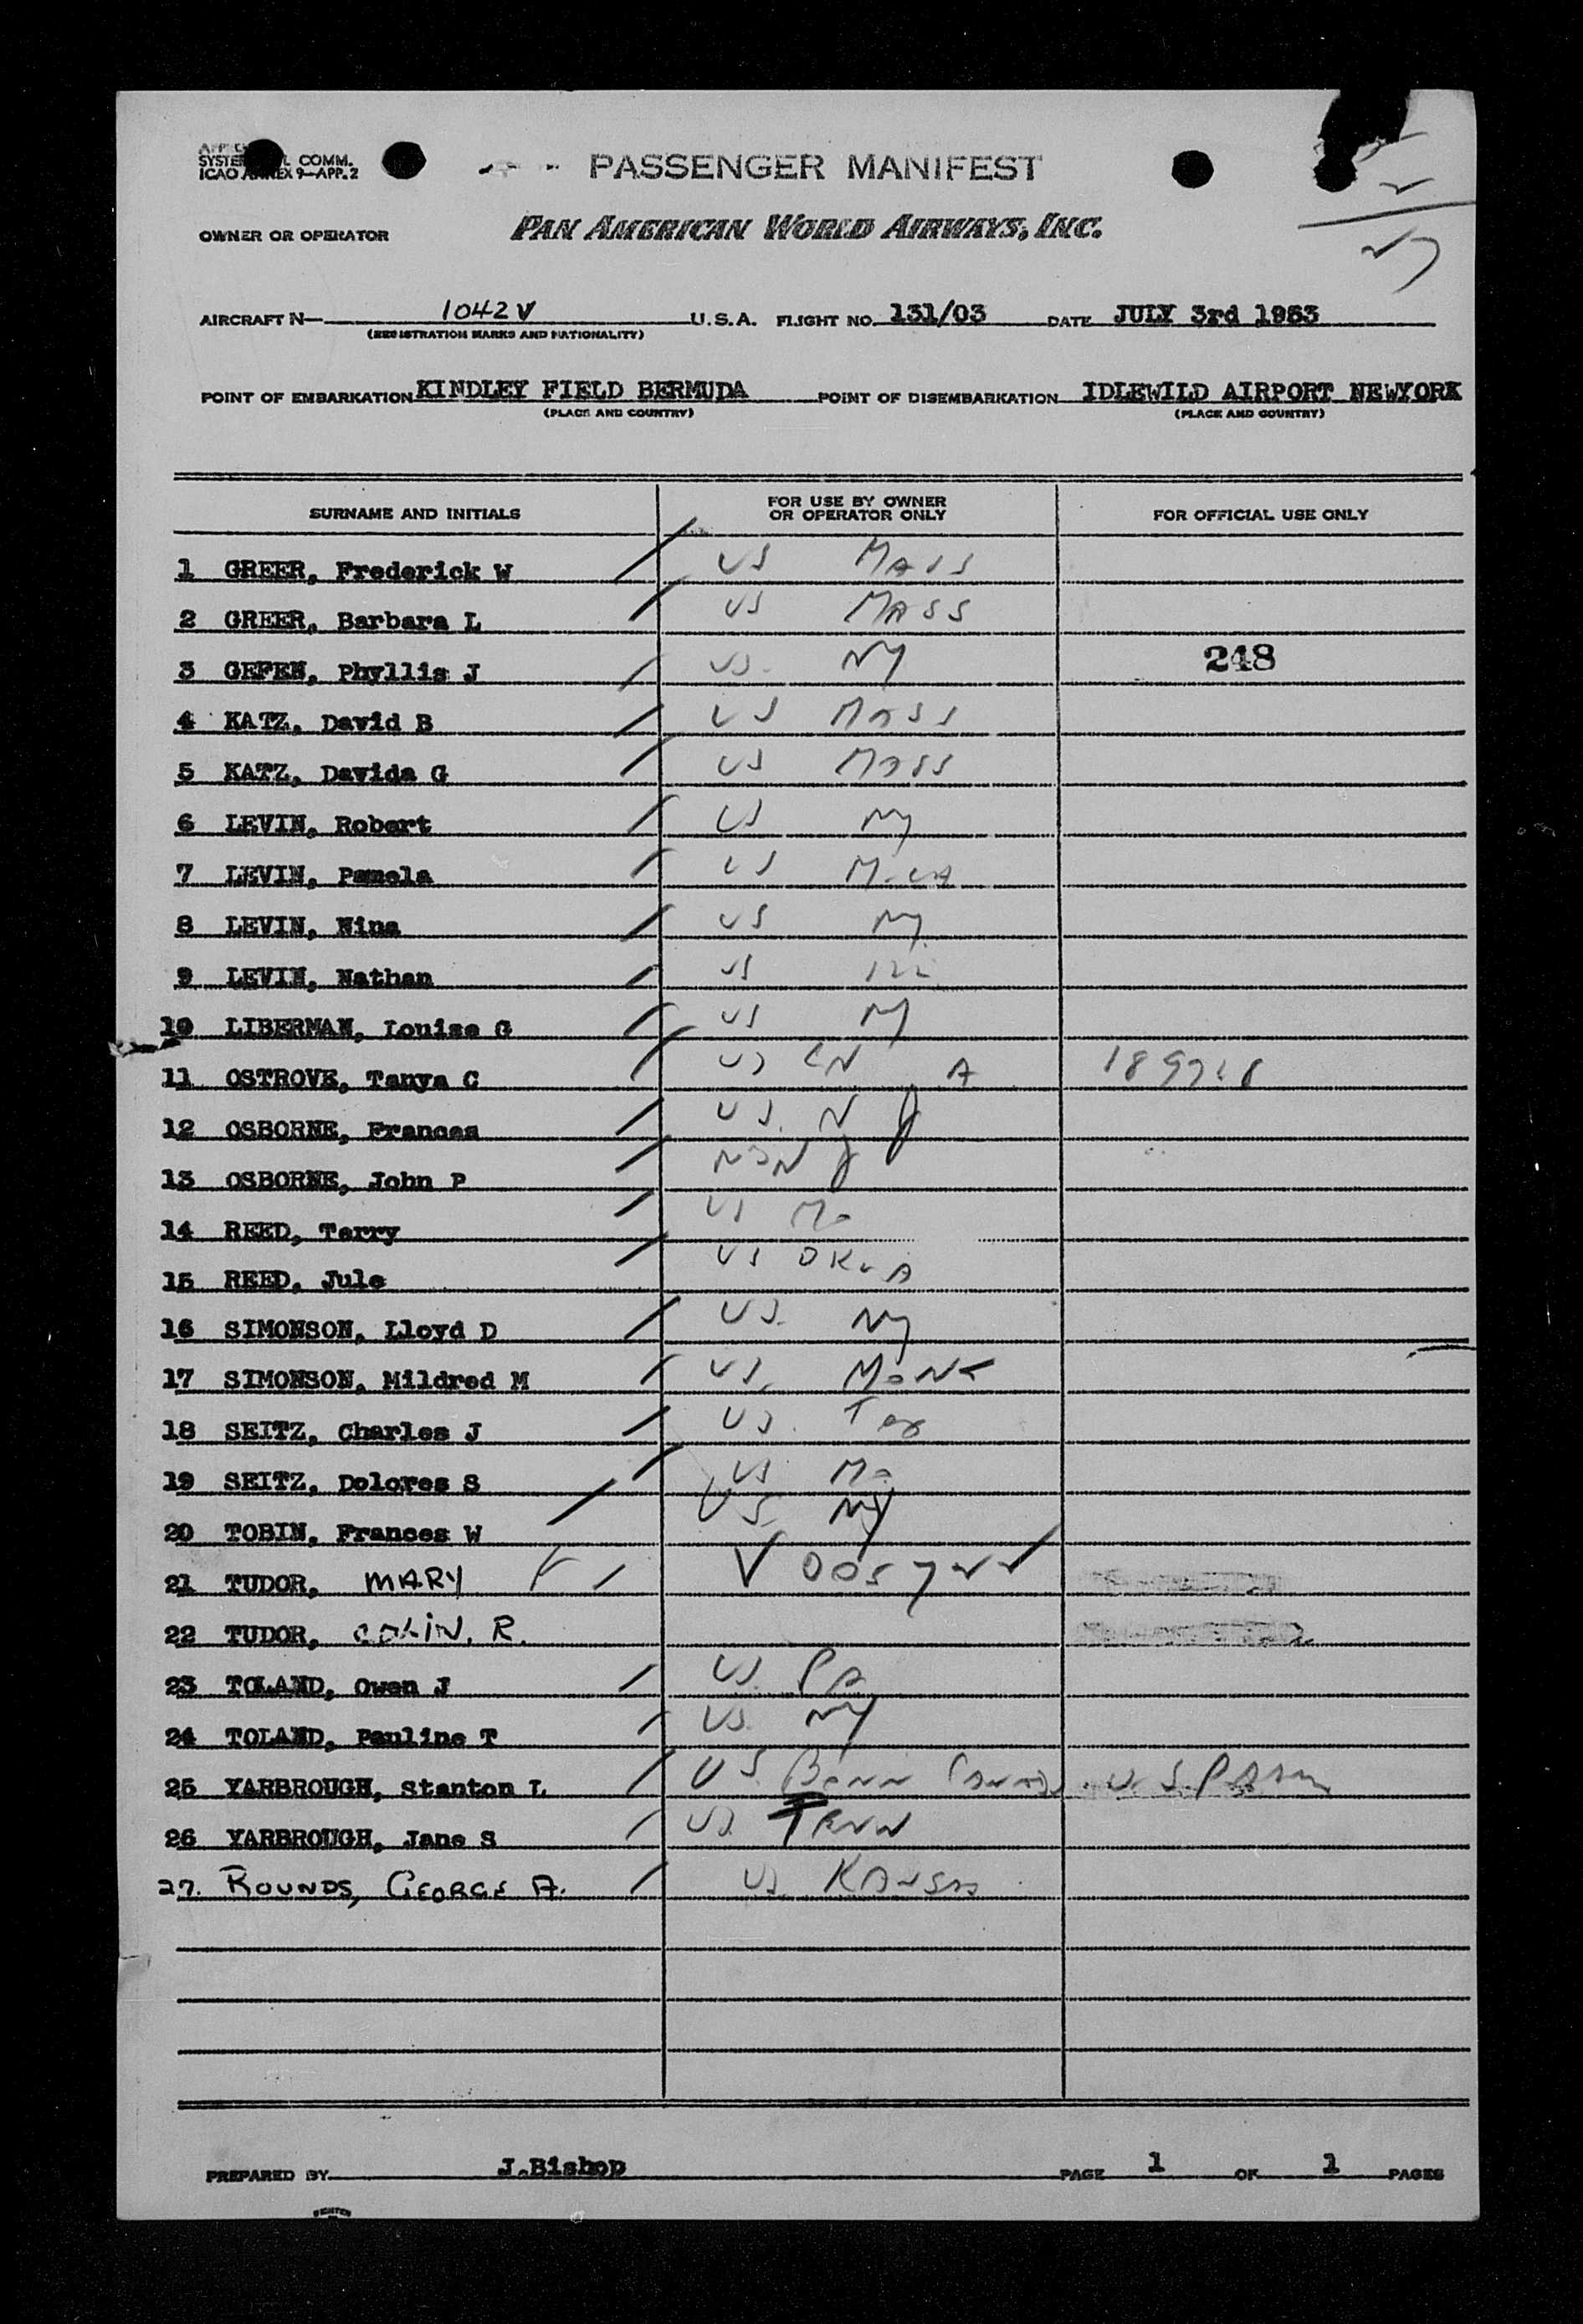 SYSTE L COMM.
ICAO ANNEX 9—APP. 2
PASSENGER MANIFEST
OWNER OR OPERATOR PAN AMERICAN WORLD AIRWAYS, INC.
AIRCRAFT N— 1042V U.S.A. FLIGHT NO. 131/03 DATE JULY 3rd 1953
(REGISTRATION MARKS AND NATIONALITY)
POINT OF EMBARKATION KINDLEY FIELD BERMUDA POINT OF DISEMBARKATION IDLEWILD AIRPORT NEWYORK
(PLACE AND COUNTRY) (PLACE AND COUNTRY)
SURNAME AND INITIALS FOR USE BY OWNER OR OPERATOR ONLY FOR OFFICIAL USE ONLY
1 GREER, Frederick W US MASS
2 GREER, Barbara L US MASS
3 GEFEN, Phyllis J US. NY 248
4 KATZ, David B US MASS
5 KATZ, Davida G US MASS
6 LEVIN, Robert US NY
7 LEVIN, Pamela US
8 LEVIN, Nina US NY
9 LEVIN, Nathan US ILL
10 LIBERMAN, Louise G US NY
11 OSTROVE, Tanya C US A
12 OSBORNE, Frances US. N J
13 OSBORNE, John P
14 REED, Terry US Mo
15 REED, Jule US OKLA
16 SIMONSON, Lloyd D US. NY
17 SIMONSON, Mildred M US. MONT
18 SEITZ, Charles J US. Tex
19 SEITZ, Dolores S US Mo
20 TOBIN, Frances W US. NY
21 TUDOR, MARY
22 TUDOR, COLIN. R.
23 TOLAND, Owen J US. PA
24 TOLAND, Pauline T US. NY
25 YARBROUGH, Stanton L US.
26 YARBROUGH, Jane S US. TENN
27. ROUNDS, GEORGE A. US. KANSAS
PREPARED BY J.Bishop PAGE 1 OF 1 PAGES